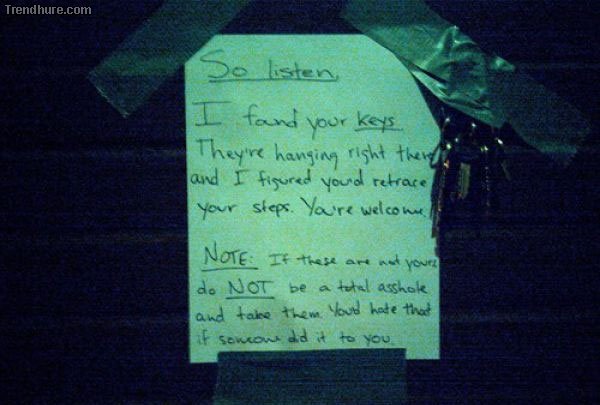 Trendhure.com
So listen,
I found your keys
They're hanging right there
and I figured you'd retrace
your steps. You're welcome.
NOTE: If these are not yours
do NOT be a total asshole
and take them. You'd hate that
if someone did it to you.